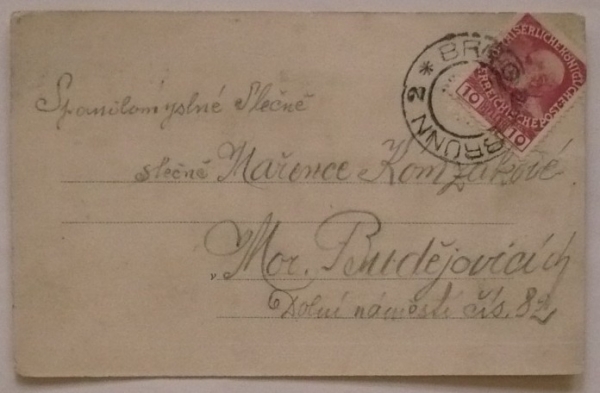 Spanilomyslné Slečně
slečně Mařence Komzákové
v Mor. Budějovicích
Dolní náměstí čís. 82
BRNO BRÜNN 2 *
KAISERLICHE KÖNIGL
ÖSTERREICHISCHE POST
10 10